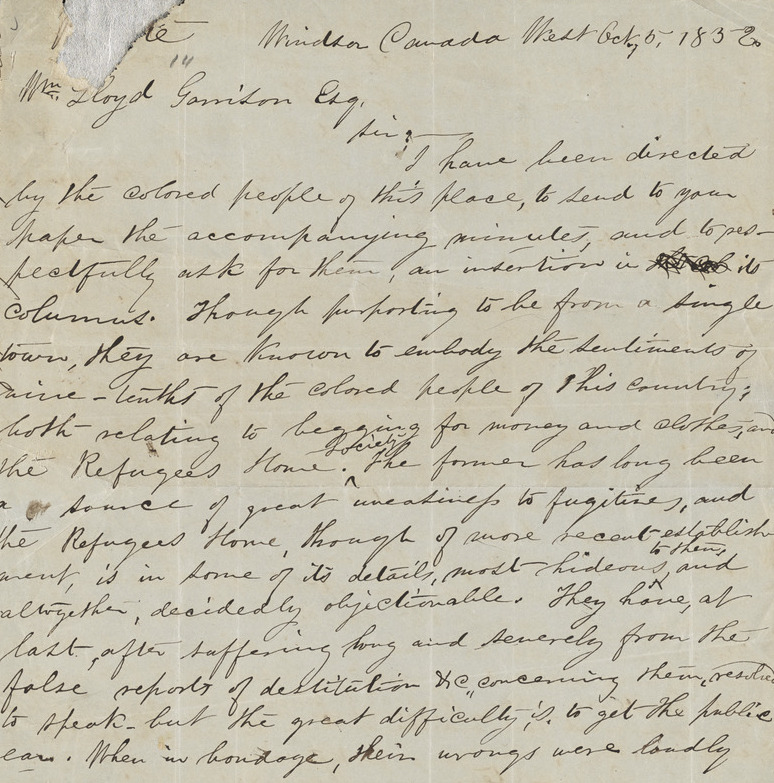 Windsor Canada West Oct, 5, 1852.
14
Wm. Lloyd Garrison Esq.
Sir;—
I have been directed
by the colored people of this place, to send to your
paper the accompanying minutes, and to res-
pectfully ask for them, an insertion in its
columns. Though purporting to be from a single
town, they are known to embody the sentiments of
nine-tenths of the colored people of this country;
both relating to begging for money and clothes, and
Society
the Refugees Home. The former has long been
a source of great uneasiness to fugitives, and
the Refugees Home, though of more recent establish
to them,
ment, is in some of its details, most hideous, and
altogether, decidedly objectionable. They have, at
last, after suffering long and severely from the
false reports of destitution &c, concerning them, resolved
to speak- but the great difficulty is, to get the public
ear. When in bondage, their wrongs were loudly